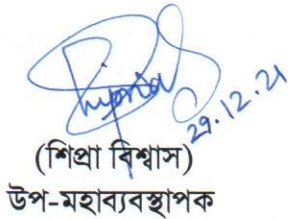 Shipra
29.12.21
(শিপ্রা বিশ্বাস)
উপ-মহাব্যবস্থাপক